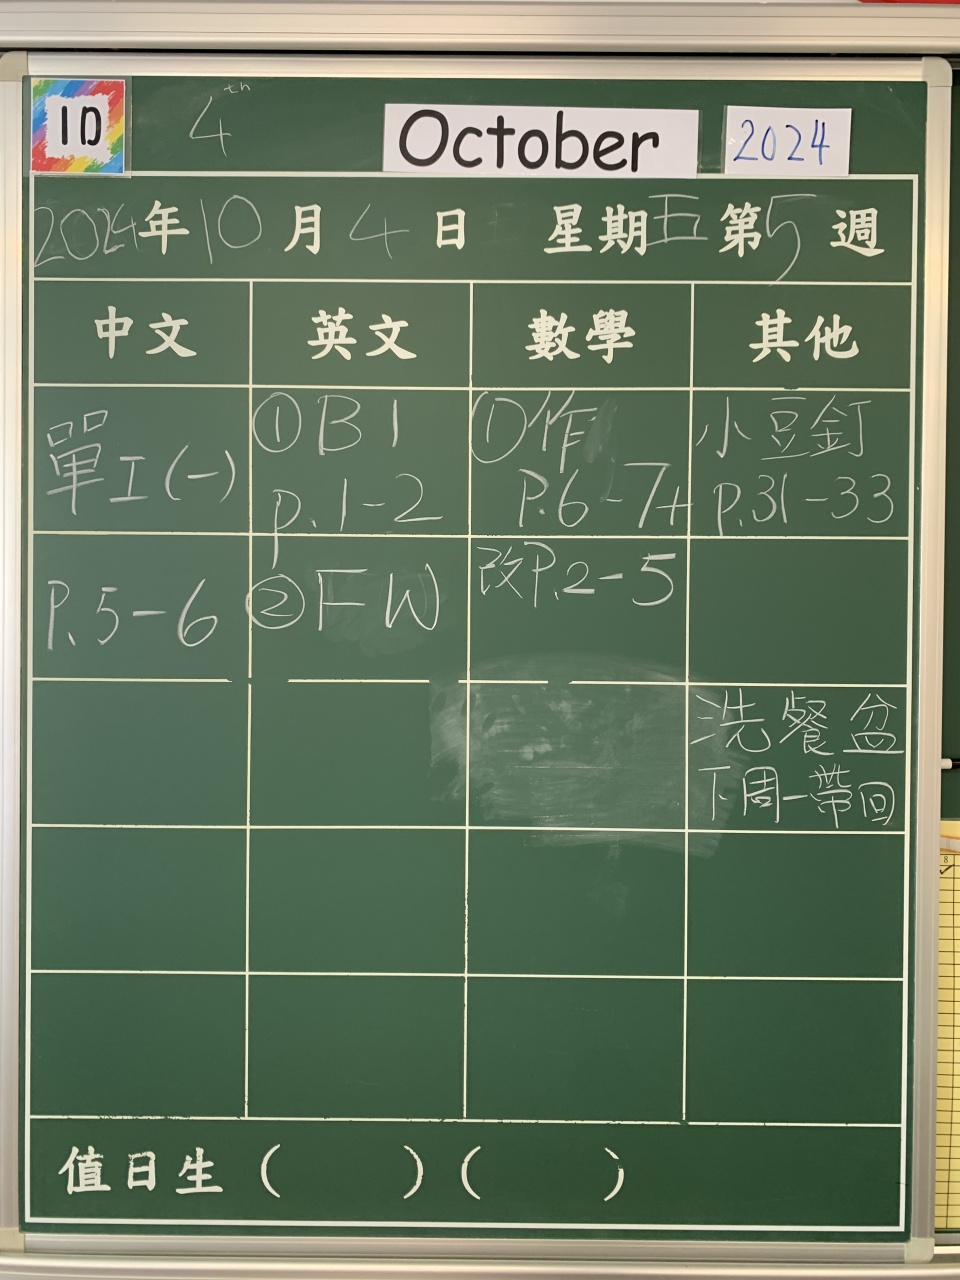 1D
4th October 2024
2024年10月4日 星期五 第5週
中文 英文 數學 其他
單工(一)
P.5-6
①B1
p.1-2
②FW
①作
P.6-7+
改P.2-5
小豆釘
p.31-33
洗餐盆
下周一帶回
值日生( )( )
8